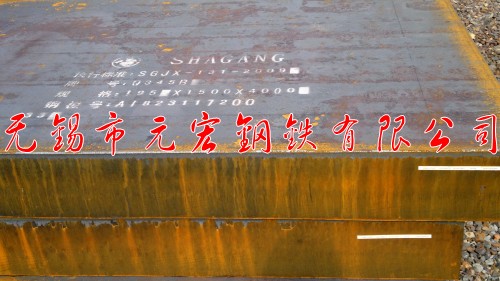 SHAGANG
执行标准:SGJX-131-2009
牌 号:Q345B
规 格:195X1500X4000
钢 卷 号:A1823117200
无锡市元宏鋼鉄有限公司